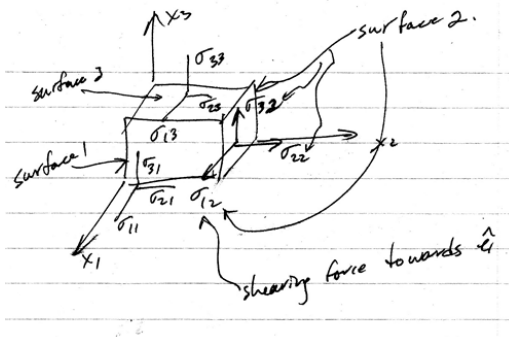 x3
σ33
surface 2.
surface 3
σ23
σ32
σ13
x2
surface 1
σ31
σ22
σ21
σ12
σ11
x1
shearing force towards ê1